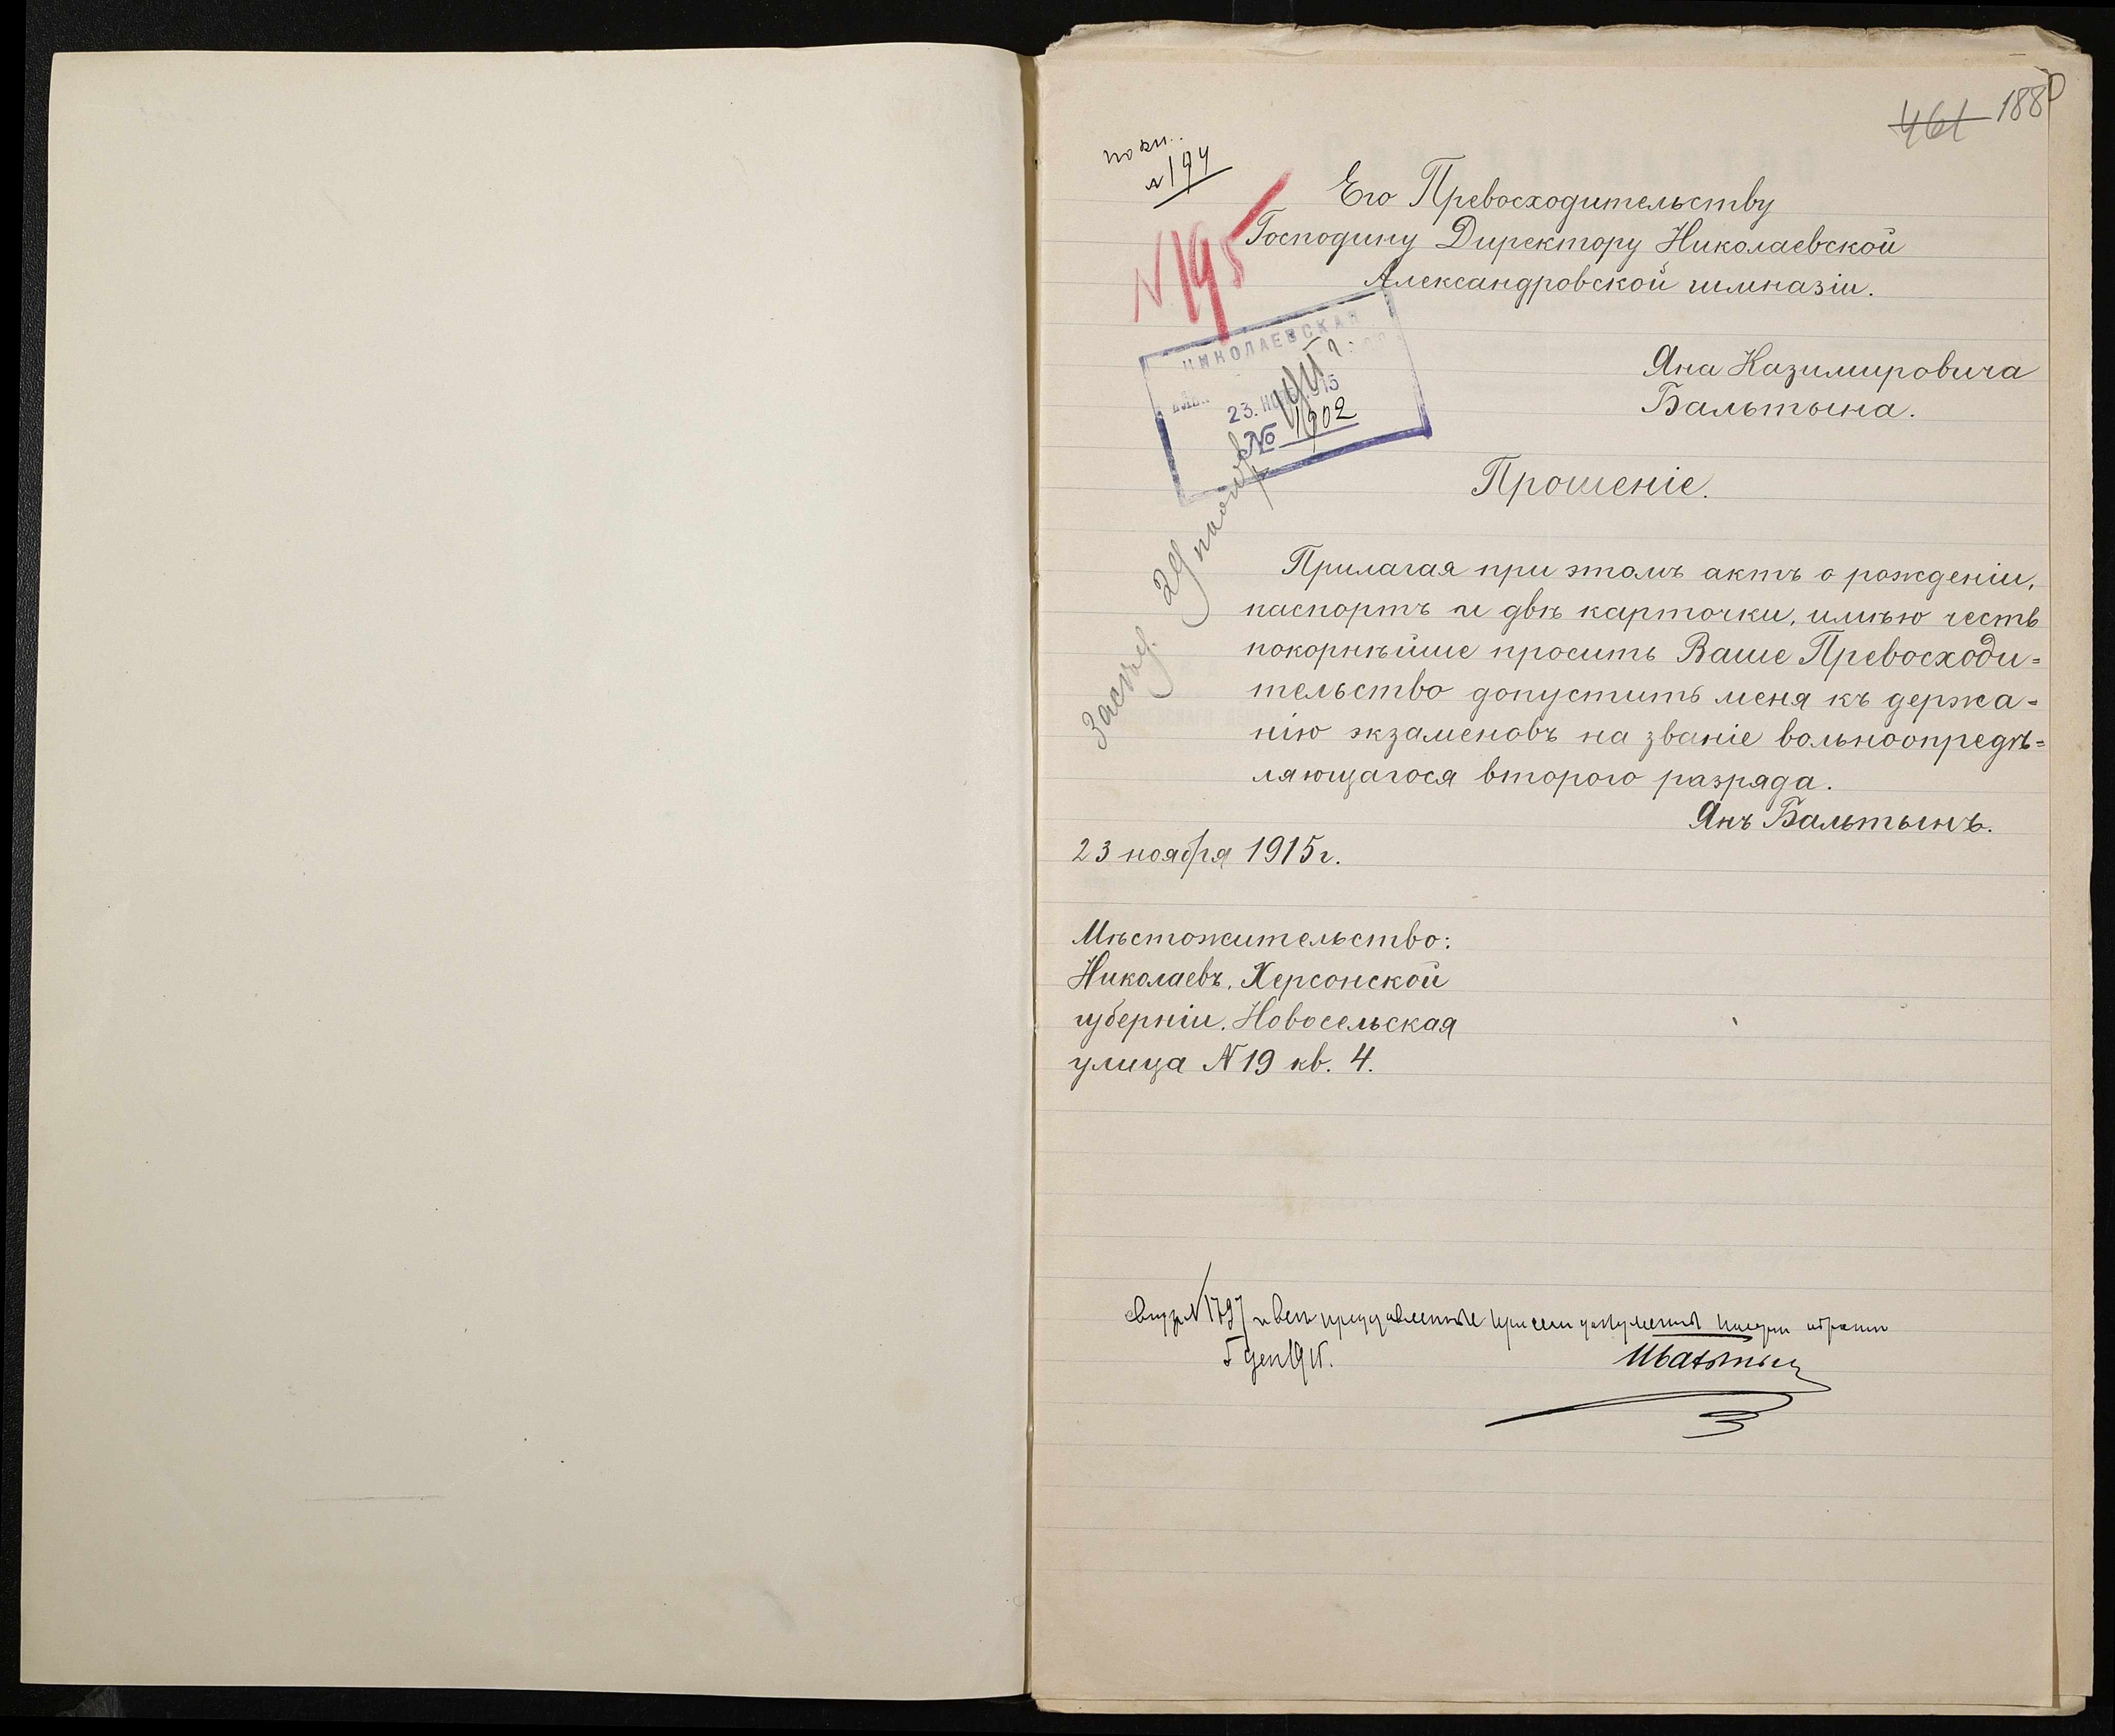 461 188
по кн.
№ 194
N 195
Его Превосходительству
Господину Директору Николаевской
Александровской гимназіи.
НИКОЛАЕВСКАЯ
23. НОЯ 1915
№ 1902
Яна Казимировича
Бальтына.
Прошеніе.
29 ноября
Прилагая при этомъ актъ о рожденіи,
паспортъ и двѣ карточки, имѣю честь
покорнѣйше просить Ваше Превосходи=
тельство допустить меня къ держа=
нію экзаменовъ на званіе вольноопредѣ=
ляющагося второго разряда.
Янъ Бальтынъ.
23 ноября 1915 г.
Мѣстожительство:
Николаевъ, Херсонской
губерніи. Новосельская
улица N 19 кв. 4.
N 1797 и все представленные при сем документы получил обратно
5 дек 1915.